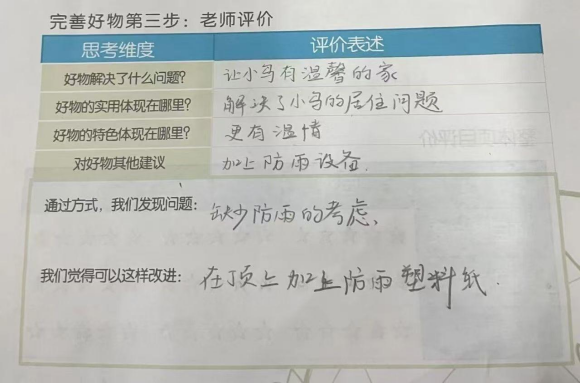 完善好物第三步：老师评价
思考维度 评价表述
好物解决了什么问题？ 让小鸟有温馨的家
好物的实用体现在哪里？ 解决了小鸟的居住问题
好物的特色体现在哪里？ 更有温情
对好物其他建议 加上防雨设备.
通过方式，我们发现问题： 缺少防雨的考虑、
我们觉得可以这样改进： 在顶上加上防雨塑料纸.